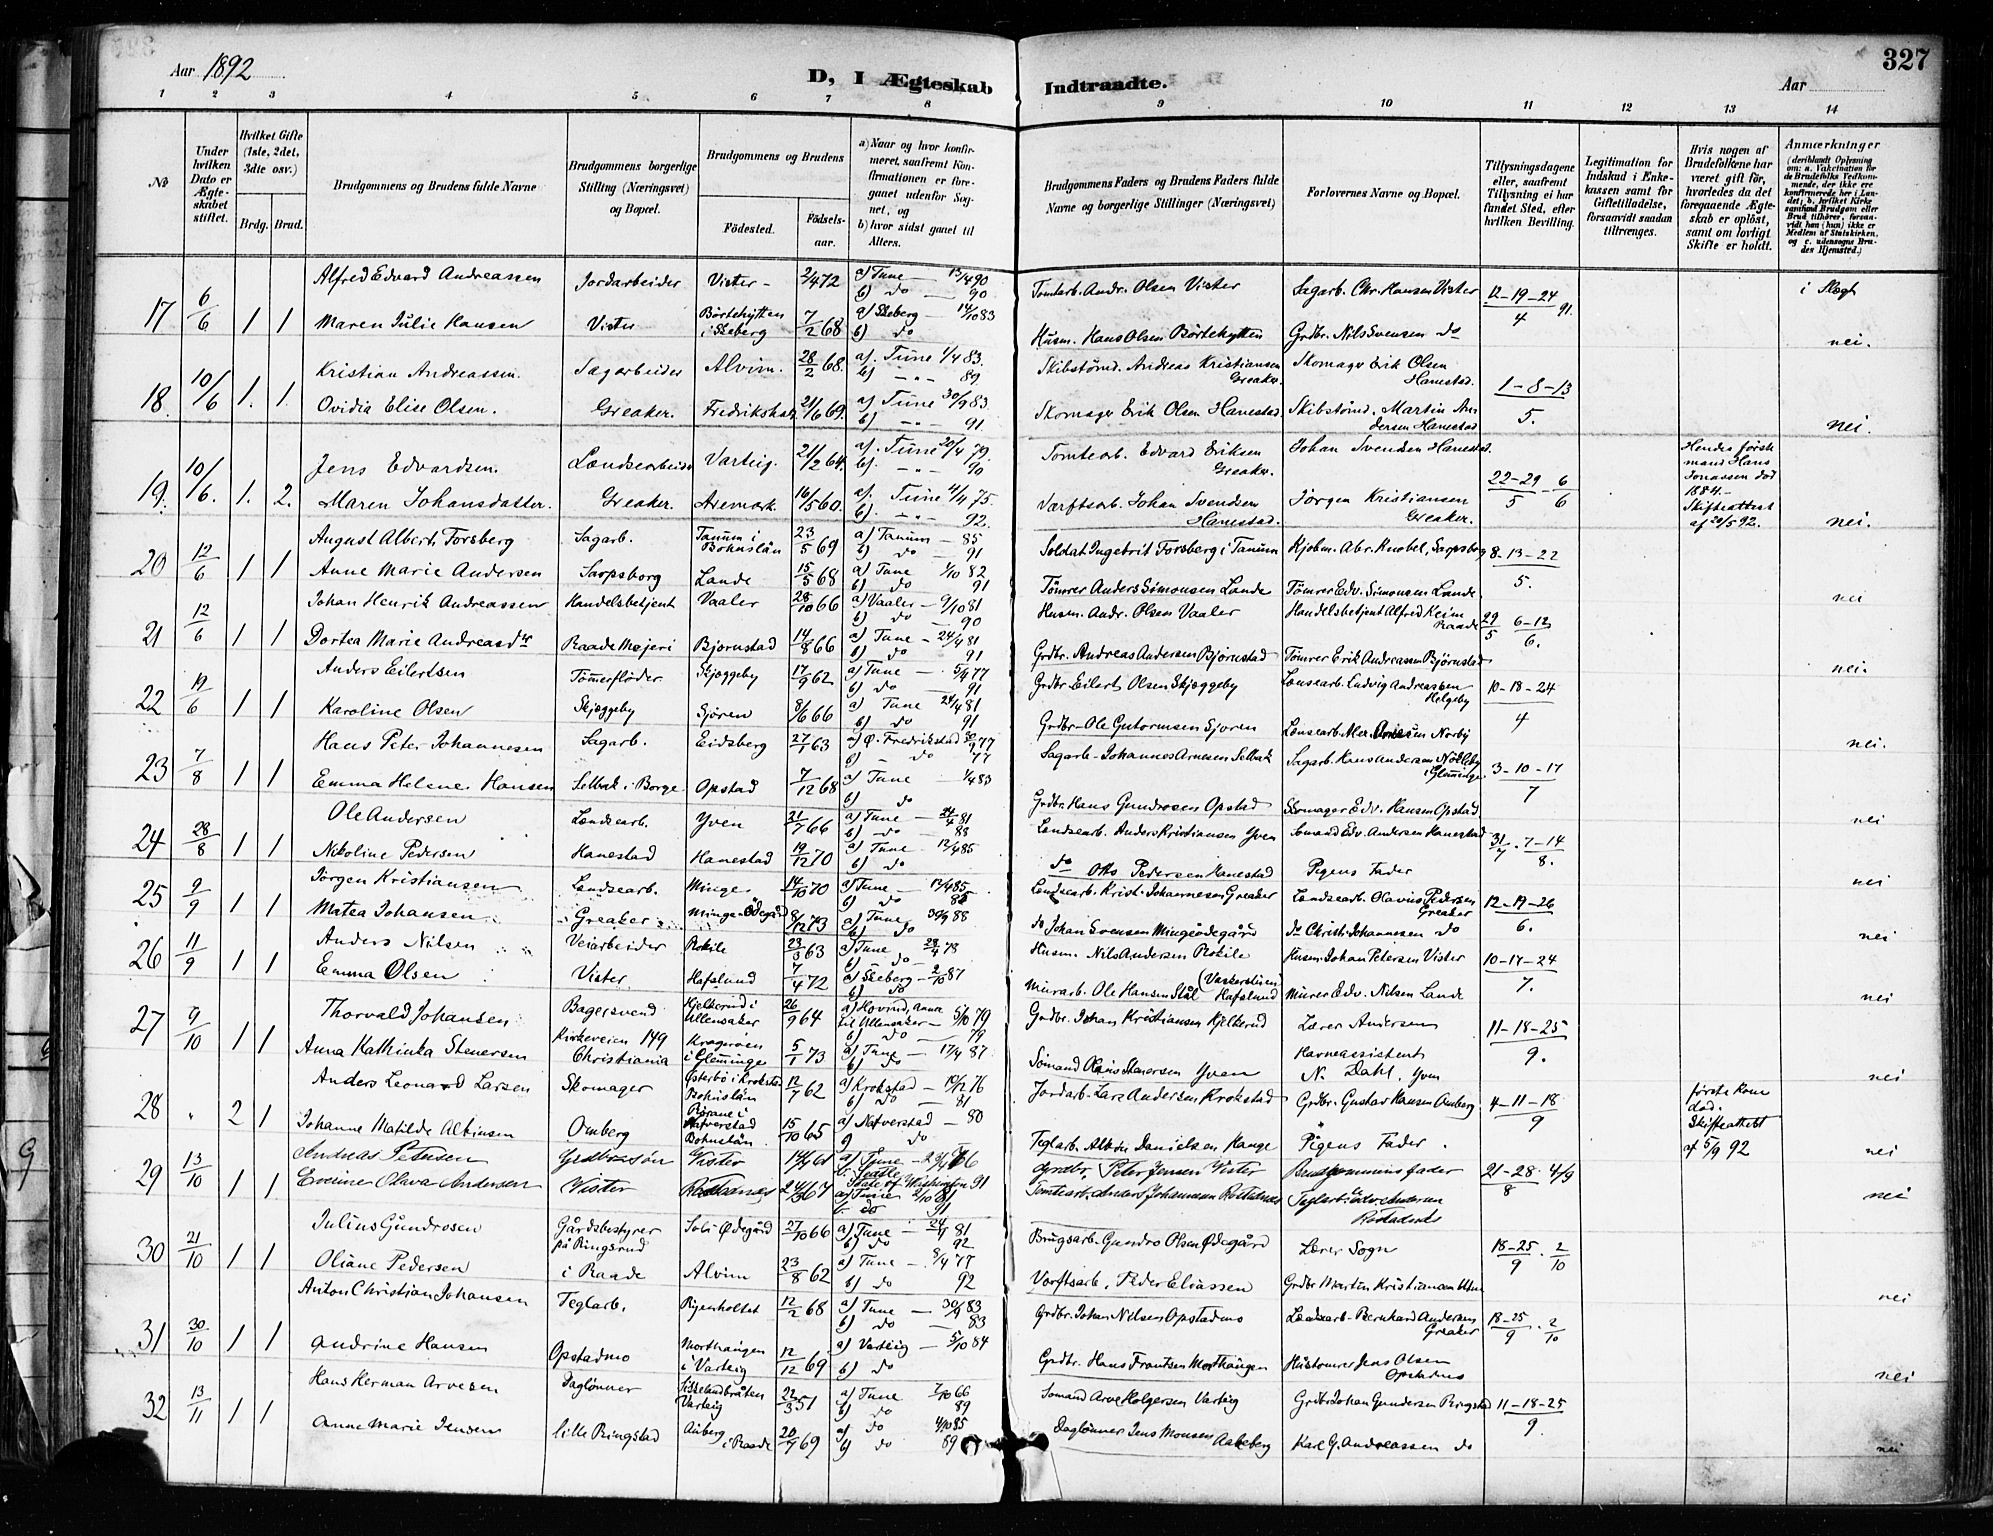 327
Aar 1892
D, I Ægteskab Indtraadte.
Aar
1 2 3 4 5 6 7 8 9 10 11 12 13 14
No
Under hvilken Dato er Ægteskabet stiftet.
Hvilket Gifte (1ste, 2det, 3dte osv.)
Brdg. Brud.
Brudgommens og Brudens fulde Navne
Brudgommens borgerlige Stilling (Næringsvei) og Bopæl.
Brudgommens og Brudens
Födested.
Födsels-aar.
a) Naar og hvor konfirmeret, saafremt Konfirmationen er foregaaet udenfor Sognet, og
b) hvor sidst gaaet til Alters.
Brudgommens Faders og Brudens Faders fulde Navne og borgerlige Stillinger (Næringsvei)
Forlovernes Navne og Bopæl.
Tillysningsdagene eller, saafremt Tillysning ei har fundet Sted, efter hvilken Bevilling.
Legitimation for Indskud i Enkekassen samt for Giftetilladelse, forsaavidt saadan tiltrænges.
Hvis nogen af Brudefolkene har været gift för, hvorledes da det foregaaende Ægteskab er oplöst, samt om lovligt Skifte er holdt.
Anmærkninger
(deriblandt Oplysning om: a. Vakcination for de Brudefolks Vedkommende, der ikke ere konfirmerede her i Landet; b. hvilket Kirkesamfund Brudgom eller Brud tilhörer, forsaavidt han (hun) ikke er Medlem af Statskirken, og c. udensogns Brudes Hjemsted.)
17 6/6 1 1 Alfred Edvard Andreassen Jordarbeider Vister 2/4 72 a) Tune 13/4 90 b) do 90 Tomtarb. Andr. Olsen Vister Sagarb. Chr. Hansen Vister 12-19-24/4 91. i Slegt
Maren Julie Hansen Vister Börtehytten i Skeberg 7/2 68 a) Skeberg 14/10 83 b) do Husm. Hans Olsen Börtehytten Grdbr. Nils Svensen do nei.
18. 10/6 1. 1. Kristian Andreassen. Sagarbeider Alvim. 28/2 68. a). Tune 1/4 83. b) -"- 89 Skibstömd. Andreas Kristiansen Greaker. Skomager Erik Olsen Hanestad. 1-8-13/5.
Ovidia Elise Olsen. Greaker. Fredrikshald 21/6 69. a) Tune 30/9 83. b) -"- 91. Skomager Erik Olsen Hanestad. Skibstömd. Martin Andersen Hanestad nei.
19. 10/6. 1. 2. Jens Edvardsen. Lændsearbeider Varteig. 21/2 64. a). Tune 20/4 79. b). -"- 90 Tomtearb. Edvard Eriksen Greaker. Johan Svendsen Hanestad. 22-29/5 - 6/6 Hendes förste mand Hans Jonassen död 1884.- Skifteattest af 20/5 92.
Maren Johansdatter. Greaker. Aremark. 16/5 60. a). Tune 4/4 75. b). -"- 92. Værftsarb. Johan Svendsen Hanestad. Jörgen Kristiansen Greaker. nei.
20 12/6 1 1 August Albert Forsberg Sagarb. Tanum i Bohuslän 23/5 69 a) Tanum - 85 b) do 91 Soldat Ingebrit Forsberg i Tanum Kjöbm. Abr. Knobel, Sarpsborg 8-13-22/5.
Anne Marie Andersen Sarpsborg Lande 15/5 68 a) Tune 1/10 82 b) do 91 Tömrer Anders Simonsen Lande Tömrer Edv. Simonsen Lande nei
21 12/6 1 1 Johan Henrik Andreassen Handelsbetjent Vaaler 28/10 66 a) Vaaler - 9/10 81 b) do 90 Husm. Andr. Olsen Vaaler Handelsbetjent Alfred Keim Raade 29/5 6-12/6.
Dortea Marie Andreasdr Raade Mejeri Bjornstad 14/8 66 a) Tune - 24/4 81 b) do 91 Grdbr. Andreas Andersen Bjornstad Tömrer Erik Andreassen Björnstad nei.
22 19/6 1 1 Anders Eilertsen Tömmerflöder Skjæggeby 17/9 62 a) Tune - 5/4 77 b) do 91 Grdbr Eilert Olsen Skjæggeby Lænsearb. Ludvig Andreassen Helgeby 10-18-24/4
Karoline Olsen Skjæggeby Sjören 8/6 66 a) Tune 24/4 81 b) do 91 Grdbr Ole Gutormsen Sjoren Lænsearb. Norby nei.
23 7/8 1 1 Hans Peter Johannesen Sagarb. Eidsberg 27/1 63 a) Ö. Fredrikstad 30/9 77 b) - do 77 Sagarb. Johannes Arnesen Selbak Sagarb. Hans Andersen Nökleby i Glemminge 3-10-17/7
Emma Helene Hansen Selbak i Borge Opstad 7/12 68 a) Tune 1/4 83 b) do Grdbr. Hans Gundrosen Opstad Skomager Edv. Hansen Opstad. nei
24 28/8 1 1 Ole Andersen Lændsearb. Yven 21/7 66 a) Tune 24/4 81 b) do 88 Lændsearb. Anders Kristiansen Yven Sömand Edv. Andersen Hanestad 31/7 . 7-14/8.
Nikoline Pedersen Hanestad Hanestad 19/12 70 a) Tune 12/4 85 b) do do Otto Pedersen Hanestad Pigens Fader nei
25 9/9 1 1 Jörgen Kristiansen Landsearb. Minge 14/10 70 a) Tune - 12/4 85 b) do Landsearb. Krist. Johannesen Greaker Landsearb. Olavus Pedersen Greaker 12-19-26/6.
Matea Johansen Greaker Minge Ödegård 8/12 73 a) Tune 30/9 88 b) do do Johan Svensen Mingeödegård do Christ. Johannesen do nei
26 11/9 1 1 Anders Nilsen Veiarbeider Rokile 23/3 63 a) Tune 28/4 78 b) - do Husm. Nils Andersen Rokile Husm. Johan Petersen Vister 10-17-24/7.
Emma Olsen Vister Hafslund 7/4 72 a) Skeberg - 2/10 87 b) do Murarb. Ole Hansen Stål Hafslund Murer Edv. Nilsen Lande nei
27 9/10 1 1 Thorvald Johansen Bagersvend Kjelkerud i Ullensaker 26/9 64 a) Hovind, annex til Ullensaker - 5/10 79 b) do 79 Grdbr. Johan Kristiansen Kjelkerud Lærer Andersen 11-18-25/9.
Anna Kathinka Stenersen Kirkeveien 149 Christiania Krageröen i Glemminge 5/1 73 a) Tune - 17/4 87 b) do Sömand Stenersen Yven Havneassistent N. Dahl. Yven nei
28 " 2 1 Anders Leonard Larsen Skomager Österbö i Krokstad Bohuslän 12/7 62 a) Krokstad - 10/12 76 b) do 81 Jordarb. Lars Andersen Krokstad Grdbr. Gustav Hansen Omberg 4-11-18/9 förste kone död. Skifteattest af 5/9 92
Johanne Matilde Albinsen Omberg Rörane i Nafverstad Bohuslän 15/10 65 a) Nafverstad - 80 b) do Teglarb. Albin Danielsen Hauge Pigens Fader. nei
29 13/10 1 1 Andreas Petersen Grdbrsön Vister 14/4 61 a) Tune - b. Seattle State of Washington 91 Grdbr. Peter Jensen Vister Brudgommens fader 21-28/8 . 4/9
Eveline Olava Andersen Vister 67 a) Tune 2/10 81 b. do 91 Tomtearb. Anders Johannesen Teglarb. nei
30 21/10 1 1 Julius Gundrosen Gårdsbestyrer på Ringsrud Solli Ødegård 27/10 66 a) Tune - 24/4 81 b) do 92 Brugsarb. Gundro Olsen Ødegård Lærer Sogn 18-25/9 . 2/10
Oliane Pedersen i Raade Alvim 23/8 62 a) Tune - 8/4 77 b) do 92 Værftsarb. Peder Eliassen Grdbr Martin Kristiansen nei
31 30/10 1 1 Anton Christian Johansen Teglarb. Ryenholtet 12/2 68 a) Tune - 30/9 83 b) do 83 Grdbr. Johan Nilsen Opstadmo Lændsarb. Bernhard Andersen Greaker 18-25/9 . 2/10
Andrine Hansen Opstadmo Morthaugen i Varteig 12/12 69 a) Varteig - 5/10 84 b) do Grdbr. Hans Frantsen Morthaugen Hustömrer Jens Olsen Opstadmo nei
32 13/11 1 1 Hans Herman Arvesen Daglönner Sisselundbråten Varteig 22/3 51 a) Tune 7/10 66 b) do 89 Somand Arve Holgersen Varteig Grdbr Johan Gundersen Ringstad 11-18-25/9.
Anne Marie Jensen lille Ringstad Auberg i Raade 20/7 69 a) do 4/10 85 b) do 89 Daglönner Jens Monsen Aakeberg Karl G. Andreassen do nei